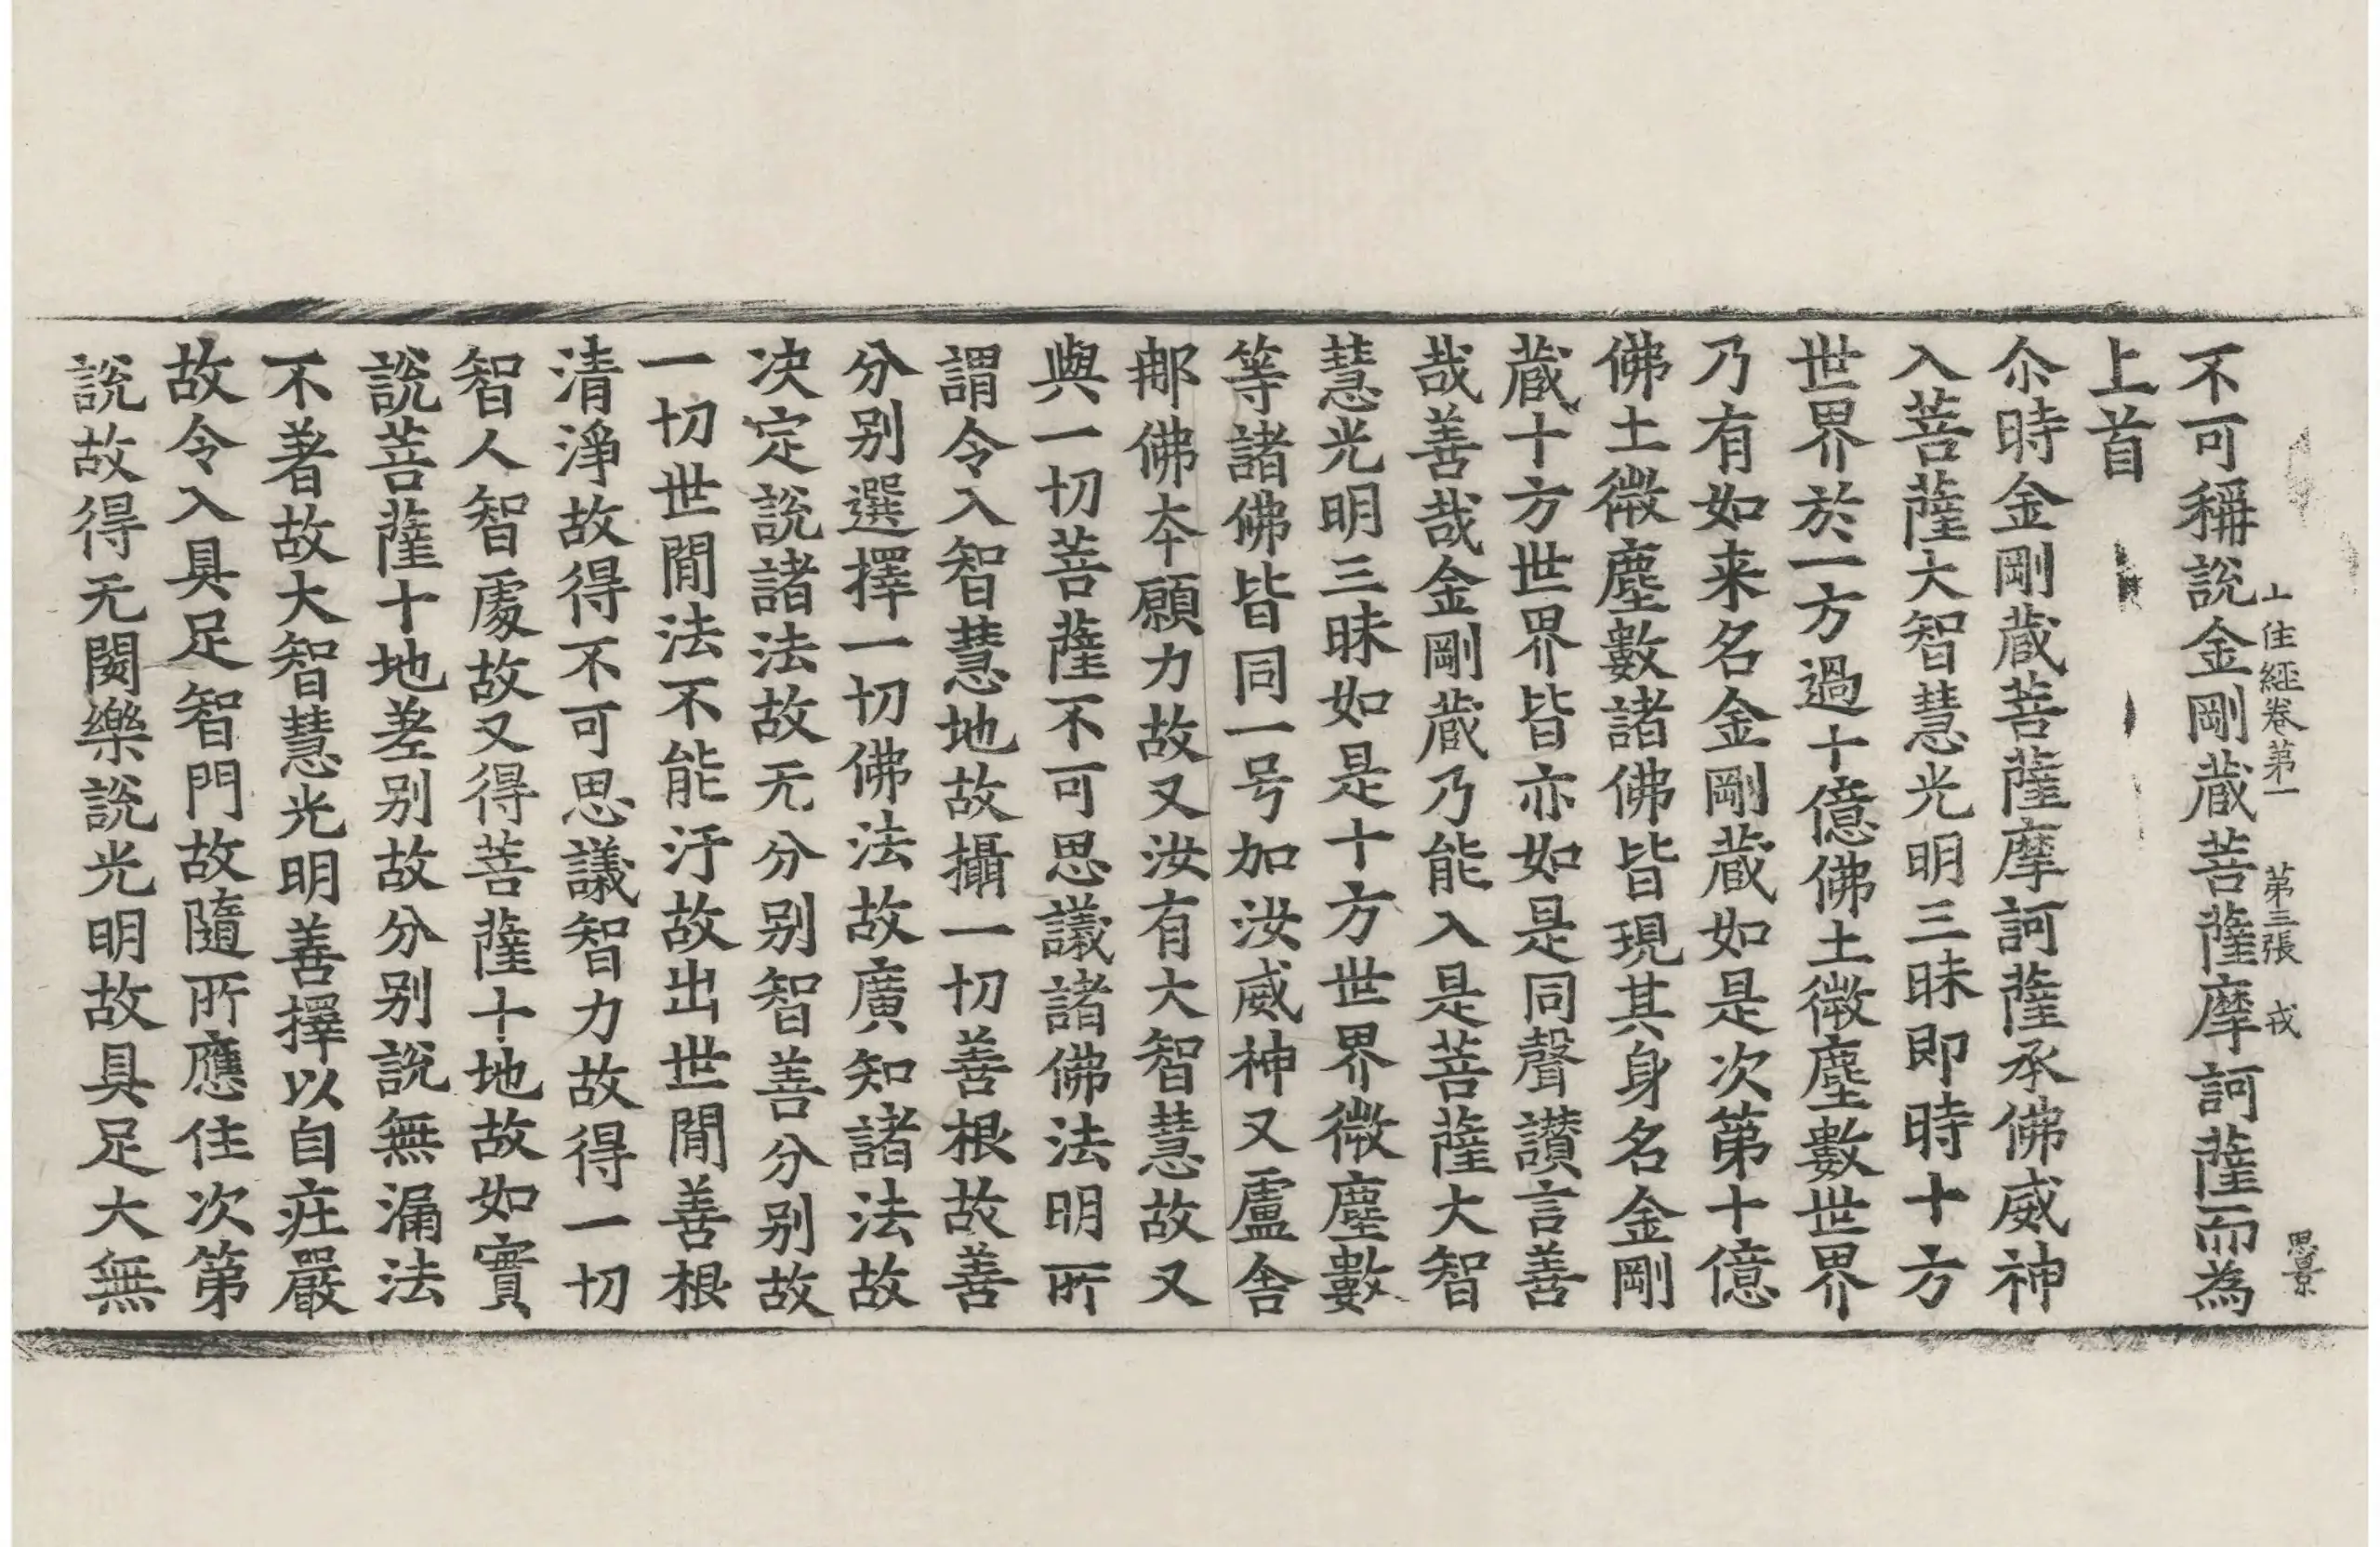 十住經卷第一 第三張 戎
不可稱說金剛蔵菩薩摩訶薩而為
上首
尒時金剛蔵菩薩摩訶薩承佛威神
入菩薩大智慧光明三昧即時十方
世界於一方過十億佛土微塵數世界
乃有如来名金剛蔵如是次第十億
佛土微塵數諸佛皆現其身名金剛
蔵十方世界皆亦如是同聲讃言善
哉善哉金剛蔵乃能入是菩薩大智
慧光明三昧如是十方世界微塵數
等諸佛皆同一号加汝威神又盧舎
那佛夲願力故又汝有大智慧故又
與一切菩薩不可思議諸佛法明所
謂令入智慧地故攝一切善根故善
分别選擇一切佛法故廣知諸法故
决定說諸法故无分别智善分别故
一切世閒法不能汙故出世閒善根
清淨故得不可思議智力故得一切
智人智處故又得菩薩十地故如實
說菩薩十地差别故分别說無漏法
不著故大智慧光明善擇以自莊嚴
故令入具足智門故隨所應住次第
說故得无閡樂說光明故具足大無